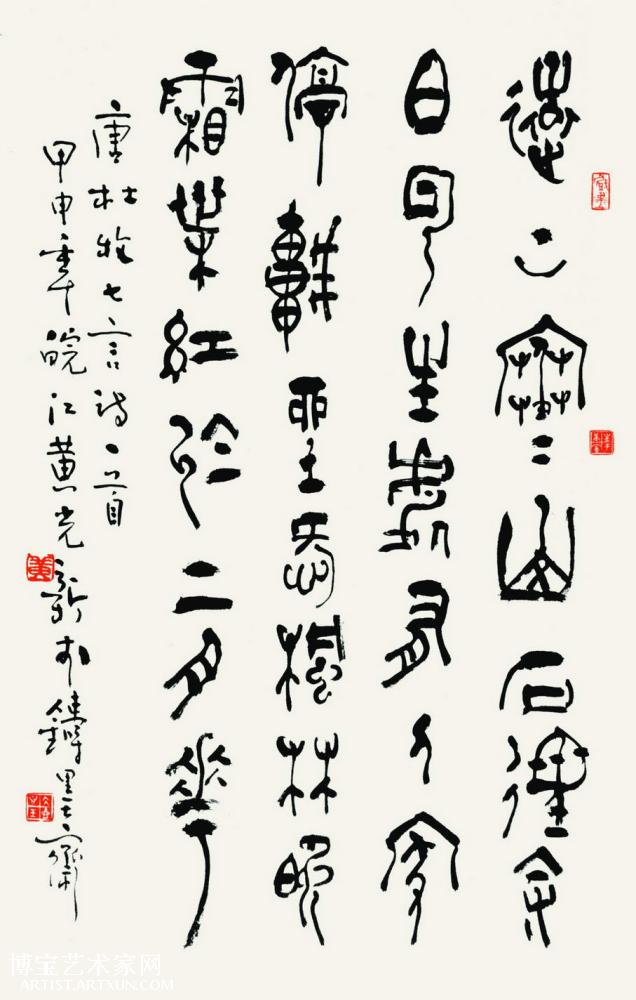 遠上寒山石徑余
白云生處有人家
停車坐愛楓林晚
霜葉紅於二月華
唐杜牧七言詩一首
甲申年皖江黄光新於鑄齋
博宝艺术家网
ARTIST.ARTXUN.COM